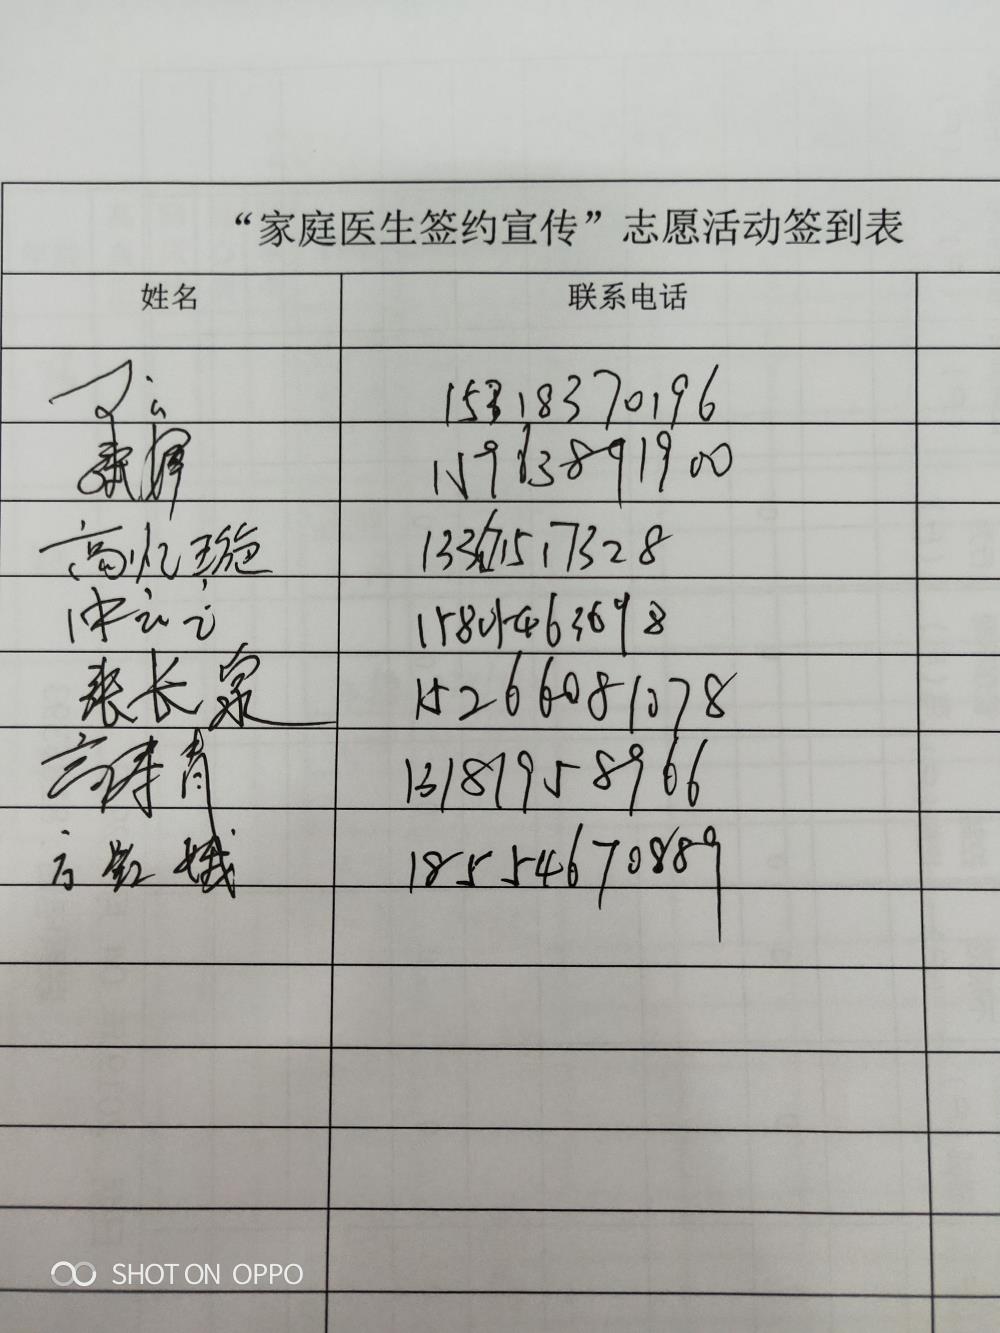 “家庭医生签约宣传”志愿活动签到表
姓名 联系电话
15318370196
15913891900
高忆璇 13361517328
15804463698
张长泉 15266081078
高涛青 13181958966
方红娥 18554670889
SHOT ON OPPO